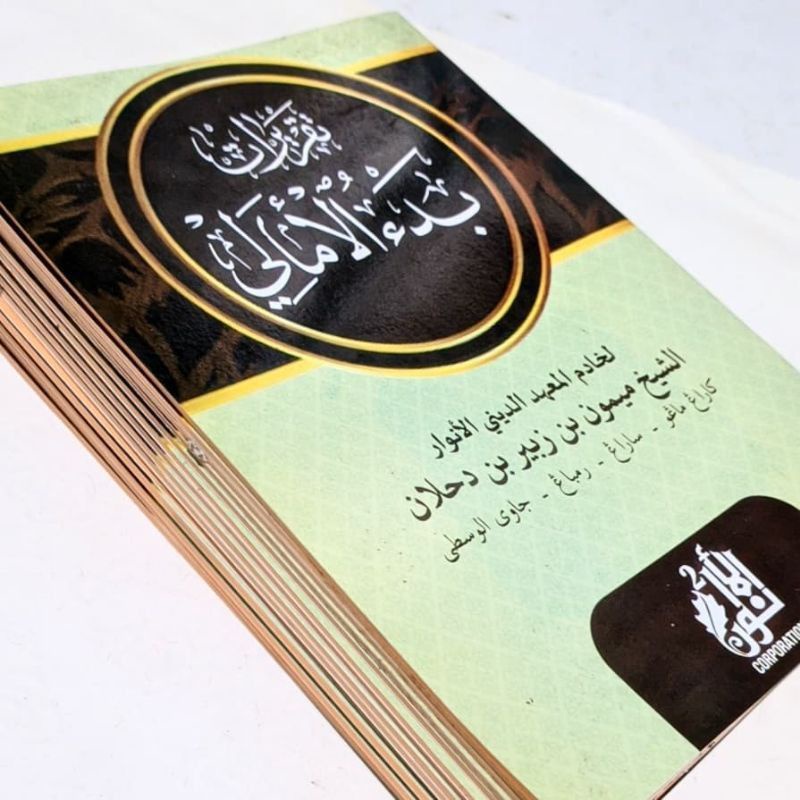 تقريرات
بدء الأمالي
لخادم المعهد الديني الأنوار
الشيخ ميمون بن زبير بن دحلان
كاراڠ ماڠو - ساراڠ - رمباڠ - جاوى الوسطى
الأنوار
CORPORATION